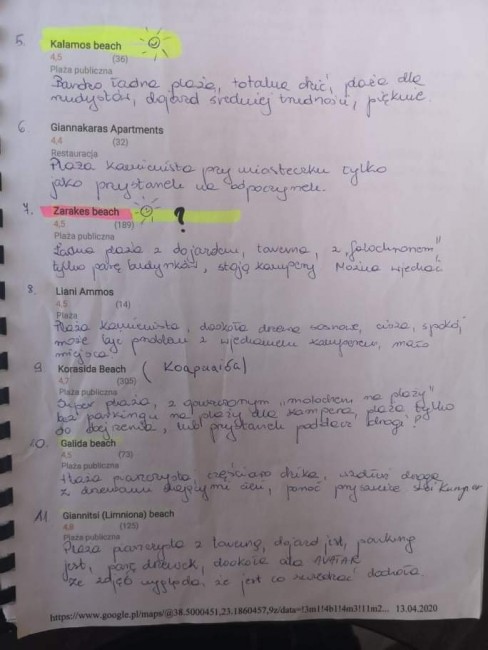 5. Kalamos beach
4,5 (36)
Plaża publiczna
Bardzo ładna plaża, totalna dzicz, plaża dla
nudystów, dojazd średniej trudności, pięknie.
6. Giannakaras Apartments
4,4 (32)
Restauracja
Plaża kamienista przy miasteczku tylko
jako przystanek na odpoczynek.
7. Zarakes beach ?
4,5 (189)
Plaża publiczna
Ładna plaża z dojazdem, tawerna, z "falochronem",
tylko parę budynków, stoją kampery Można wjechać
8. Liani Ammos
4,5 (14)
Plaża
Plaża kamienista, dookoła drzewa sosnowe, cisza, spokój
może być problem z wjechaniem kamperem, mało
miejsca
9. Korasida Beach (Κοραριδα)
4,7 (305)
Plaża publiczna
Super plaża, z
bez parkingu na plaży dla kampera, plaża tylko
do dojrzenia, lub przystanek podczas drogi
10. Galida beach
4,5 (73)
Plaża publiczna
Plaża piaszczysta, częściowo dzika, wzdłuż droga
z drzewami dającymi cień, ponoć prysznice
11. Giannitsi (Limniona) beach
4,8 (125)
Plaża publiczna
Plaża piaszczysta z tawerną, dojazd jest, parking
jest, parę drzewek, dookoła ala AVATAR
ze zdjęć wygląda, że jest co zwiedzać dookoła.
https://www.google.pl/maps/@38.5000451,23.1860457,9z/data=!3m1!4b1!4m3!11m2... 13.04.2020